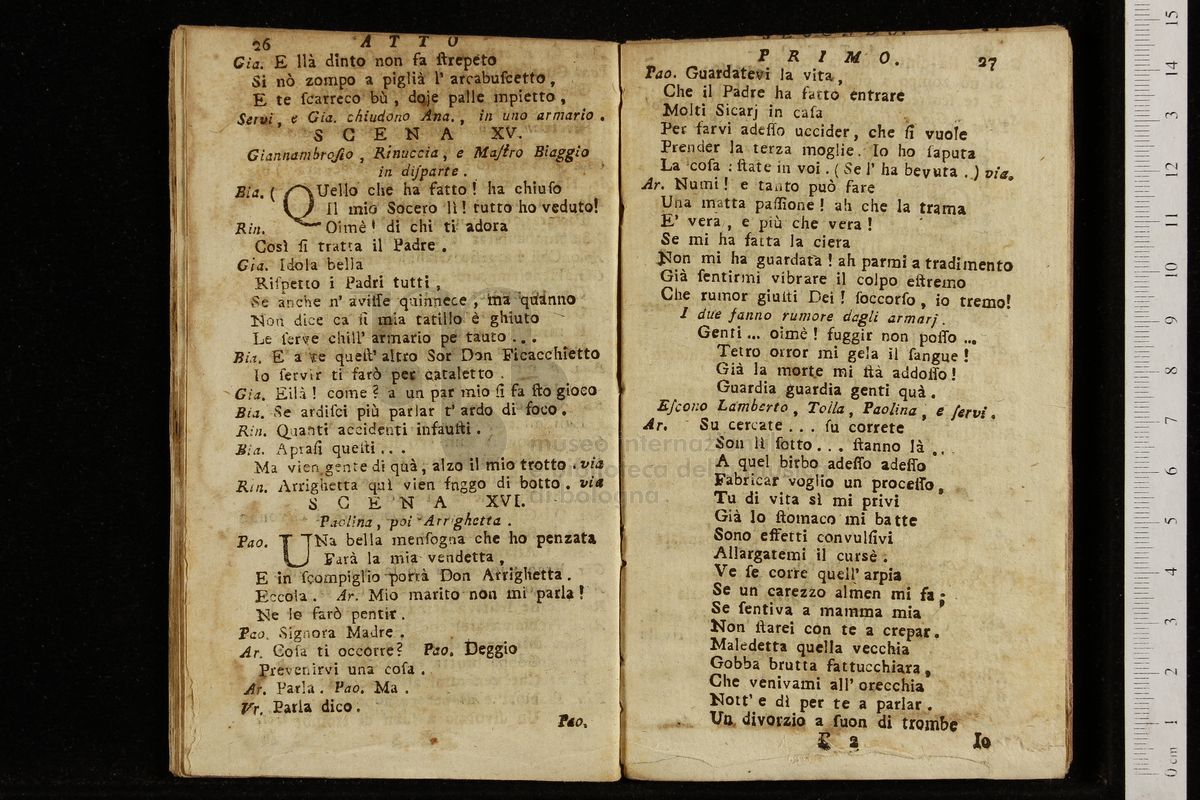 26 A T T O
Gia. E llà dinto non fa ſtrepeto
Si nò zompo a piglià l' arcabuſcetto,
E te ſcarreco bù, doje palle mpietto,
Servi, e Gia. chiudono Ana., in uno armario.
S C E N A XV.
Giannambroſio, Rinuccia, e Maſtro Biaggio
in diſparte.
Bia. ( QUello che ha fatto! ha chiuſo
Il mio Socero lì! tutto ho veduto!
Rin. Oimè! di chi ti adora
Così ſi tratta il Padre.
Gia. Idola bella
Riſpetto i Padri tutti,
Se anche n' aviſſe quinnece, ma quanno
Non dice ca ſi mia tatillo è ghiuto
Le ſerve chill' armario pe tauto...
Bia. E a te queſt' altro Sor Don Ficacchietto
Io ſervir ti farò per cataletto.
Gia. Eilà! come? a un par mio ſi fa ſto gioco
Bia. Se ardiſci più parlar t' ardo di foco.
Rin. Quanti accidenti infauſti.
Bia. Apraſi queſti...
Ma vien gente di quà, alzo il mio trotto. via
Rin. Arrighetta quì vien fuggo di botto. via
S C E N A XVI.
Paolina, poi Arrighetta.
Pao. UNa bella menſogna che ho penzata
Farà la mia vendetta,
E in ſcompiglio porrà Don Arrighetta.
Eccola. Ar. Mio marito non mi parla!
Ne lo farò pentir.
Pao. Signora Madre.
Ar. Coſa ti occorre? Pao. Deggio
Prevenirvi una coſa.
Ar. Parla. Pao. Ma.
Ar. Parla dico.
Pao.
P R I M O. 27
Pao. Guardatevi la vita,
Che il Padre ha fatto entrare
Molti Sicarj in caſa
Per farvi adeſſo uccider, che ſi vuole
Prender la terza moglie. Io ho ſaputa
La coſa: ſtate in voi. (Se l' ha bevuta.) via.
Ar. Numi! e tanto può fare
Una matta paſſione! ah che la trama
E' vera, e più che vera!
Se mi ha fatta la ciera
Non mi ha guardata! ah parmi a tradimento
Già ſentirmi vibrare il colpo eſtremo
Che rumor giuſti Dei! ſoccorſo, io tremo!
I due fanno rumore dagli armarj.
Genti... oimè! fuggir non poſſo...
Tetro orror mi gela il ſangue!
Già la morte mi ſtà addoſſo!
Guardia guardia genti quà.
Eſcono Lamberto, Tolla, Paolina, e ſervi.
Ar. Su cercate... ſu correte
Son lì ſotto... ſtanno là..
A quel birbo adeſſo adeſſo
Fabricar voglio un proceſſo,
Tu di vita sì mi privi
Già lo ſtomaco mi batte
Sono effetti convulſivi
Allargatemi il cursè.
Ve ſe corre quell' arpia
Se un carezzo almen mi fa;
Se ſentiva a mamma mia
Non ſtarei con te a crepar.
Maledetta quella vecchia
Gobba brutta fattucchiara,
Che venivami all' orecchia
Nott' e dì per te a parlar.
Un divorzio a ſuon di trombe
2 Io
museo internazionale
e biblioteca della musica
di bologna